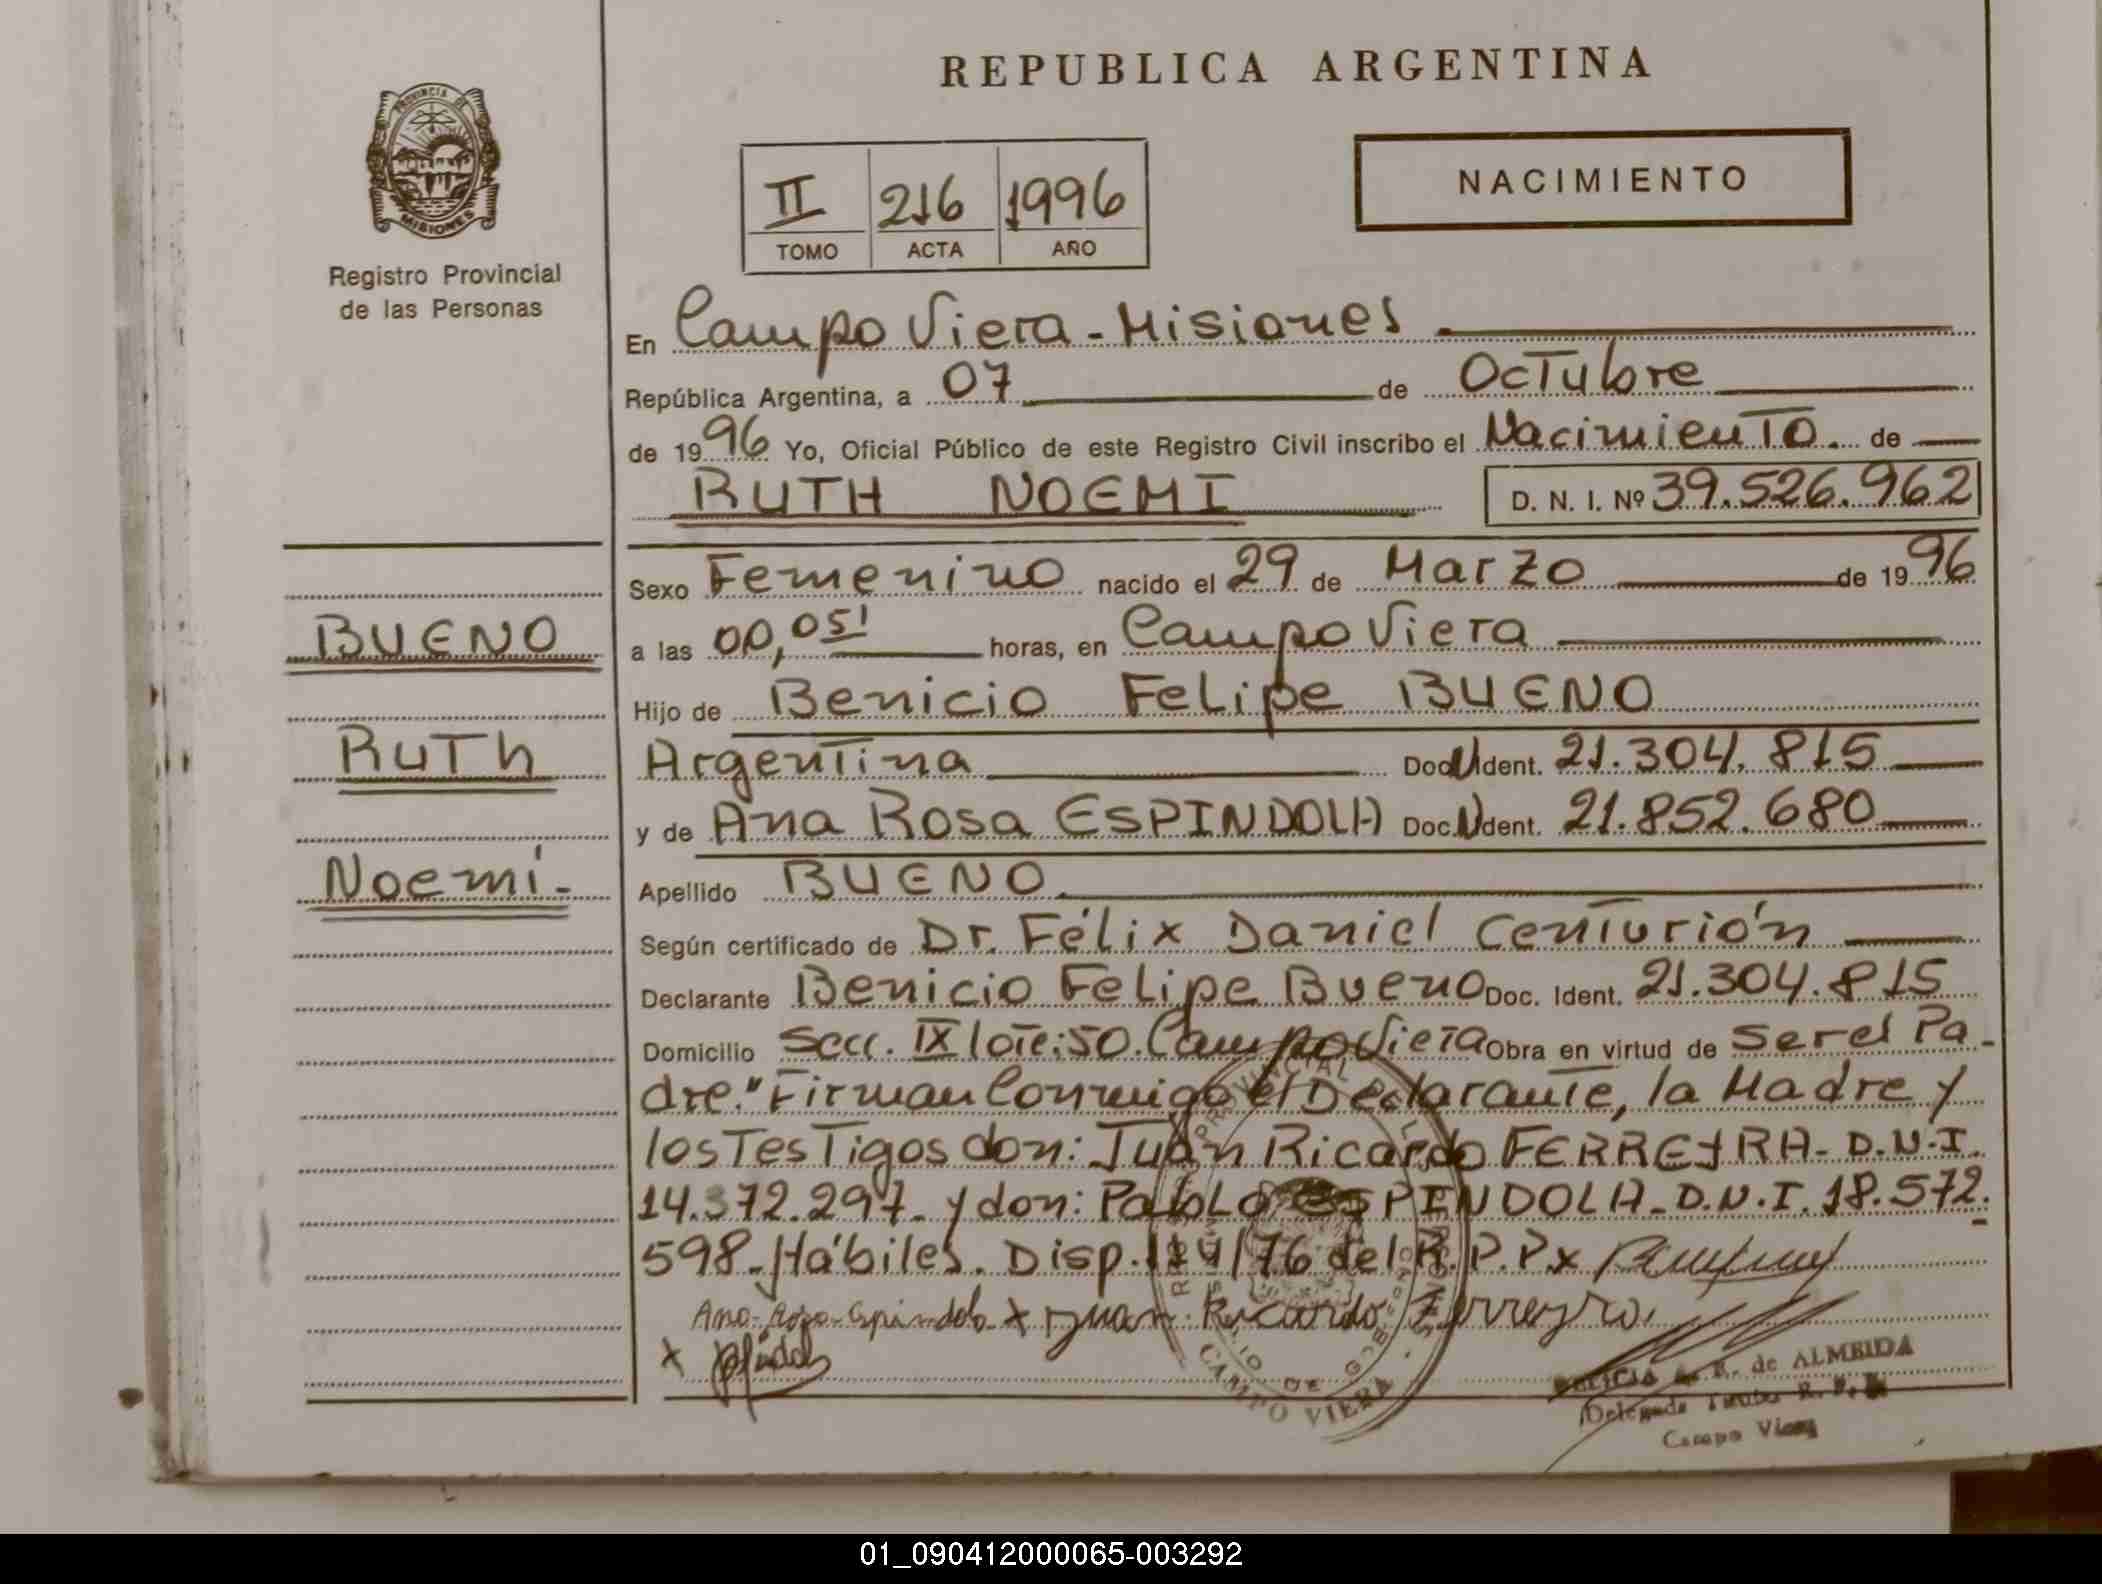 REPUBLICA ARGENTINA
PROVINCIA DE
MISIONES
Registro Provincial
de las Personas
II 216 1996
TOMO ACTA AÑO
NACIMIENTO
En Campo Viera - Misiones
República Argentina, a 07 de Octubre
de 1996 Yo, Oficial Público de este Registro Civil inscribo el Nacimiento. de
RUTH NOEMI D. N. I. Nº 39.526.962
Sexo Femenino nacido el 29 de Marzo de 1996
a las 00,05' horas, en Campo Viera
Hijo de Benicio Felipe BUENO
Argentina Doc. Ident. 21.304.815
y de Ana Rosa ESPINDOLA Doc. Ident. 21.852.680
Apellido BUENO
Según certificado de Dr. Félix Daniel Centurión
Declarante Benicio Felipe Bueno Doc. Ident. 21.304.815
Domicilio Secc. IX lote: 50. Campo Viera Obra en virtud de Ser el Pa-
dre." Firman Conmigo el Declarante, la Madre y
los Testigos don: Juan Ricardo FERREYRA - D.N.I.
14.372.297 - y don: Pablo ESPINDOLA - D.N.I. 18.572.
598 - Hábiles. Disp. 114/76 del R.P.P x
Ana Rosa Espindola x Juan Ricardo Ferreyra
x
BUENO
Ruth
Noemí -
PROVINCIAL DE
CAMPO VIERA
R. de ALMEIDA
Campo Viera
01_090412000065-003292